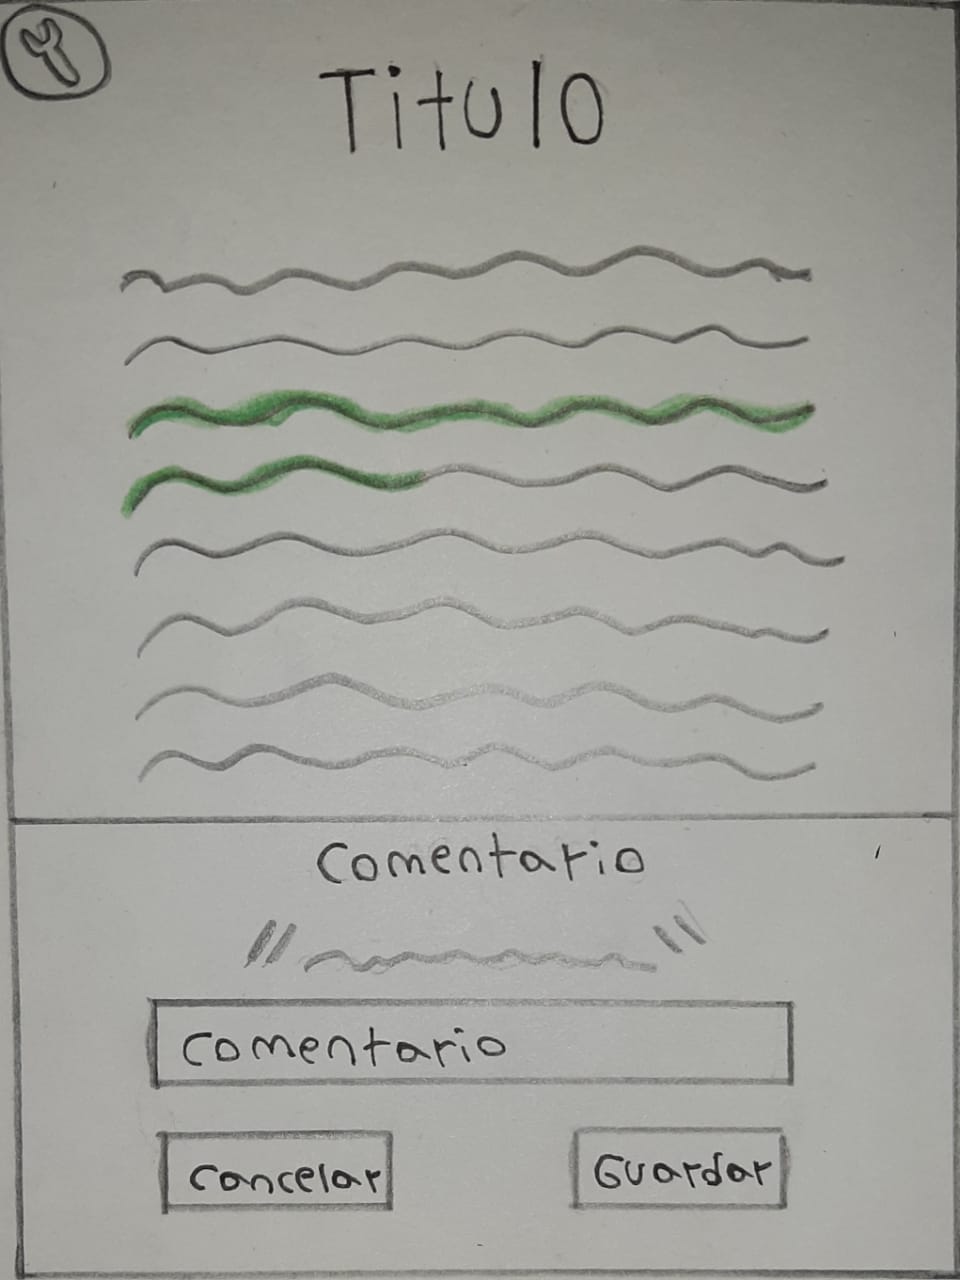 Titulo
Comentario
"
"
Comentario
Cancelar
Guardar